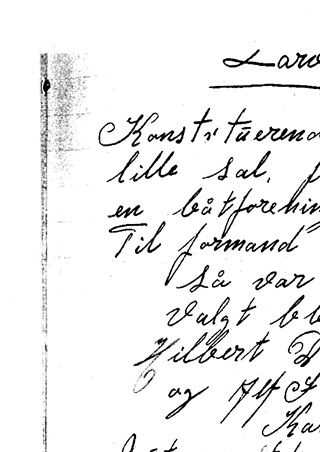 Larv
Konstituerend
lille sal, f
en båtforenin
Til formand
så var
valgt bl
Hilbert D
og Alf S
Ka